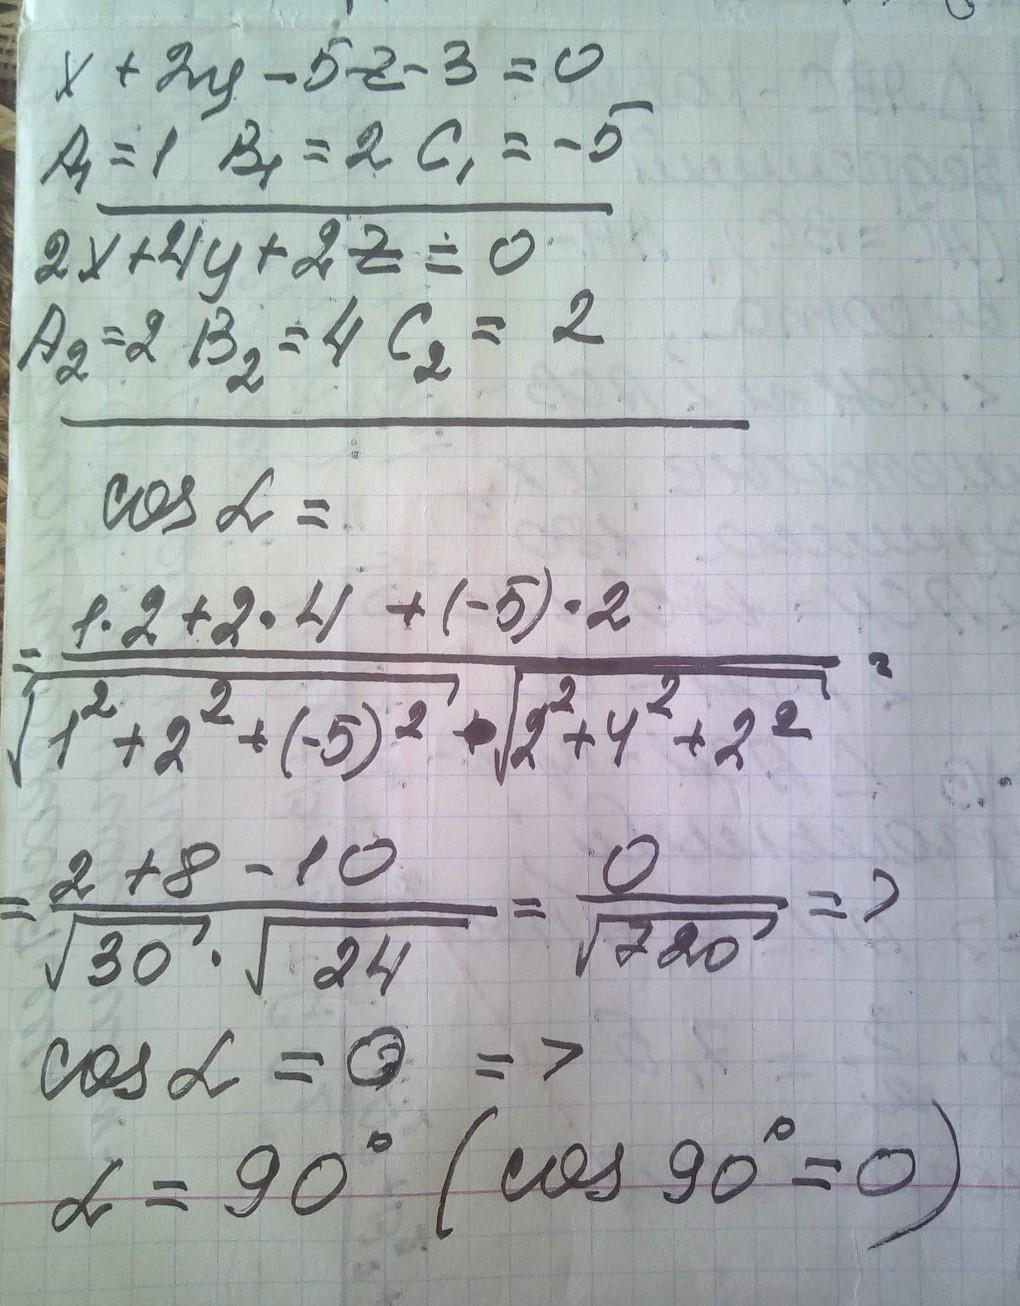 x + 2y - 5z - 3 = 0
A₁ = 1 B₁ = 2 C₁ = -5
2x + 4y + 2z = 0
A₂ = 2 B₂ = 4 C₂ = 2
cos α =
= (1·2 + 2·4 + (-5)·2) / (√(1² + 2² + (-5)²) · √(2² + 4² + 2²)) =
= (2 + 8 - 10) / (√30 · √24) = 0 / √720 =>
cos α = 0 =>
α = 90° (cos 90° = 0)